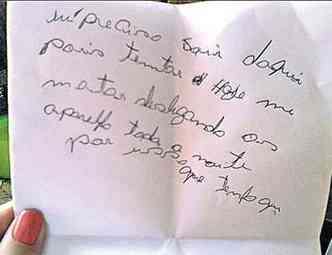 preciso sair daqui
pois tentar hoje me
matar desligando os
aparelho toda a noite
por isso que tenho